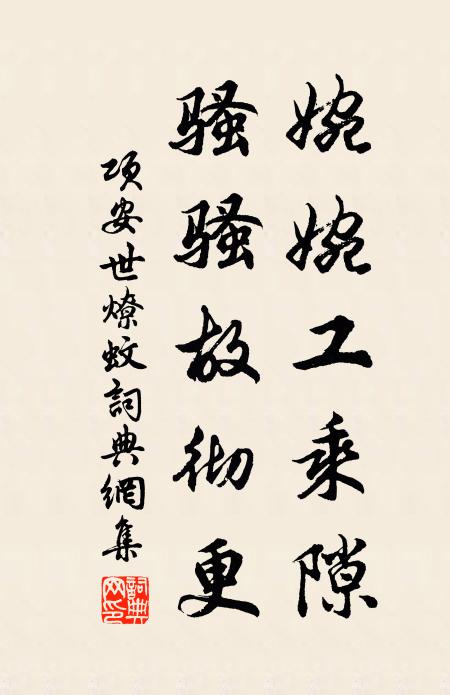 婉婉工乘隙
骚骚故彻更
项安世燎蚊詞典網集
詞典网印